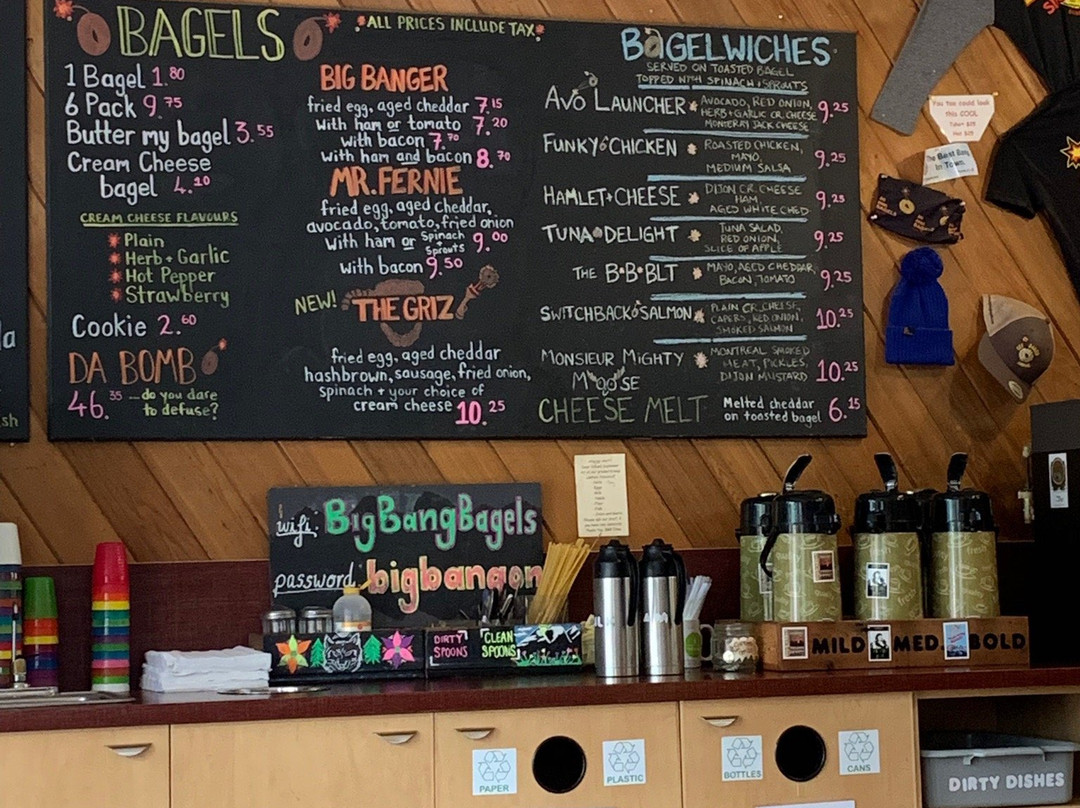 BAGELS
*ALL PRICES INCLUDE TAX*
1 Bagel 1.80
6 Pack 9.75
Butter my bagel 3.55
Cream Cheese
bagel 4.20
CREAM CHEESE FLAVOURS
Plain
Herb + Garlic
Hot Pepper
Strawberry
Cookie 2.60
DA BOMB
46.35 ...do you dare
to defuse?
BIG BANGER
fried egg, aged cheddar 7.15
with ham or tomato 7.20
with bacon 7.70
with ham and bacon 8.70
MR. FERNIE
fried egg, aged cheddar,
avocado, tomato, fried onion
with ham or Spinach Sprouts 9.00
with bacon 9.50
NEW! THE GRIZ
fried egg, aged cheddar
hashbrown, sausage, fried onion,
spinach + your choice of
cream cheese 10.25
BAGELWICHES
SERVED ON TOASTED BAGEL
TOPPED WITH SPINACH + SPROUTS
AVO LAUNCHER * AVOCADO, RED ONION, 9.25
HERB + GARLIC CR. CHEESE
MONTERRY JACK CHEESE
FUNKY CHICKEN * ROASTED CHICKEN, 9.25
MAYO,
MEDIUM SALSA
HAMLET + CHEESE * DIJON CR. CHEESE 9.25
HAM,
AGED WHITE CHED
TUNA DELIGHT * TUNA SALAD, 9.25
RED ONION,
SLICE OF APPLE
THE B•B•BLT * MAYO, AGED CHEDDAR, 9.25
BACON, TOMATO
SWITCHBACK SALMON * PLAIN CR. CHEESE, 10.25
CAPERS, RED ONION,
SMOKED SALMON
MONSIEUR MIGHTY MOOSE * MONTREAL SMOKED 10.25
MEAT, PICKLES,
DIJON MUSTARD
CHEESE MELT Melted cheddar 6.15
on toasted bagel
You too could look
this COOL
The Best Bang
In Town.
wifi. BigBangBagels
password bigbangon
DIRTY SPOONS
CLEAN SPOONS
MILD MED. BOLD
PAPER
PLASTIC
BOTTLES
CANS
DIRTY DISHES